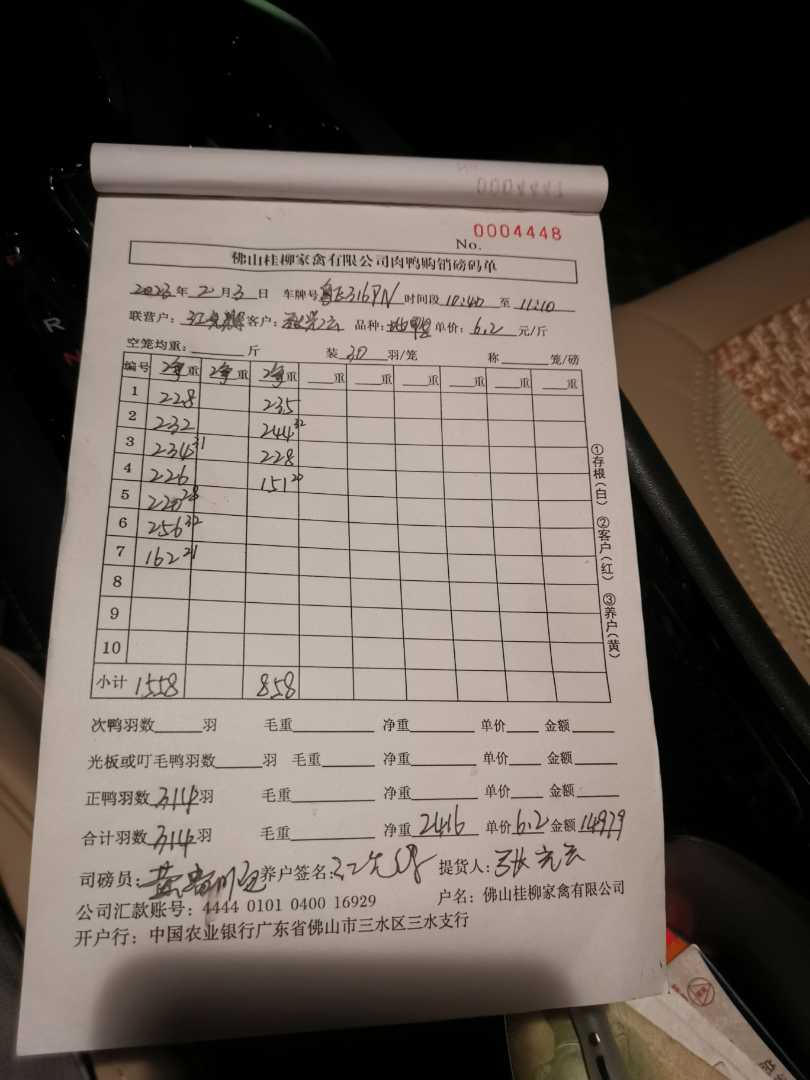 0004448
No.
佛山桂柳家禽有限公司肉鸭购销磅码单
2023年2月3日 车牌号 时间段10:40至11:10
联营户: 客户: 品种: 单价:6.2元/斤
空笼均重:斤 装30羽/笼 称笼/磅
编号 净重 净重 净重 重 重 重 重 重 重
1 228 235
2 232 244 32
3 234 31 228
4 226 151 20
5 220 28
6 256 32
7 162 21
8
9
10
小计 1558 858
①存根(白) ②客户(红) ③养户(黄)
次鸭羽数羽 毛重 净重 单价 金额
光板或叮毛鸭羽数羽 毛重 净重 单价 金额
正鸭羽数314羽 毛重 净重 单价 金额
合计羽数314羽 毛重 净重2416 单价6.2 金额14979
司磅员: 养户签名: 提货人:
公司汇款账号: 4444 0101 0400 16929 户名: 佛山桂柳家禽有限公司
开户行: 中国农业银行广东省佛山市三水区三水支行
R
N